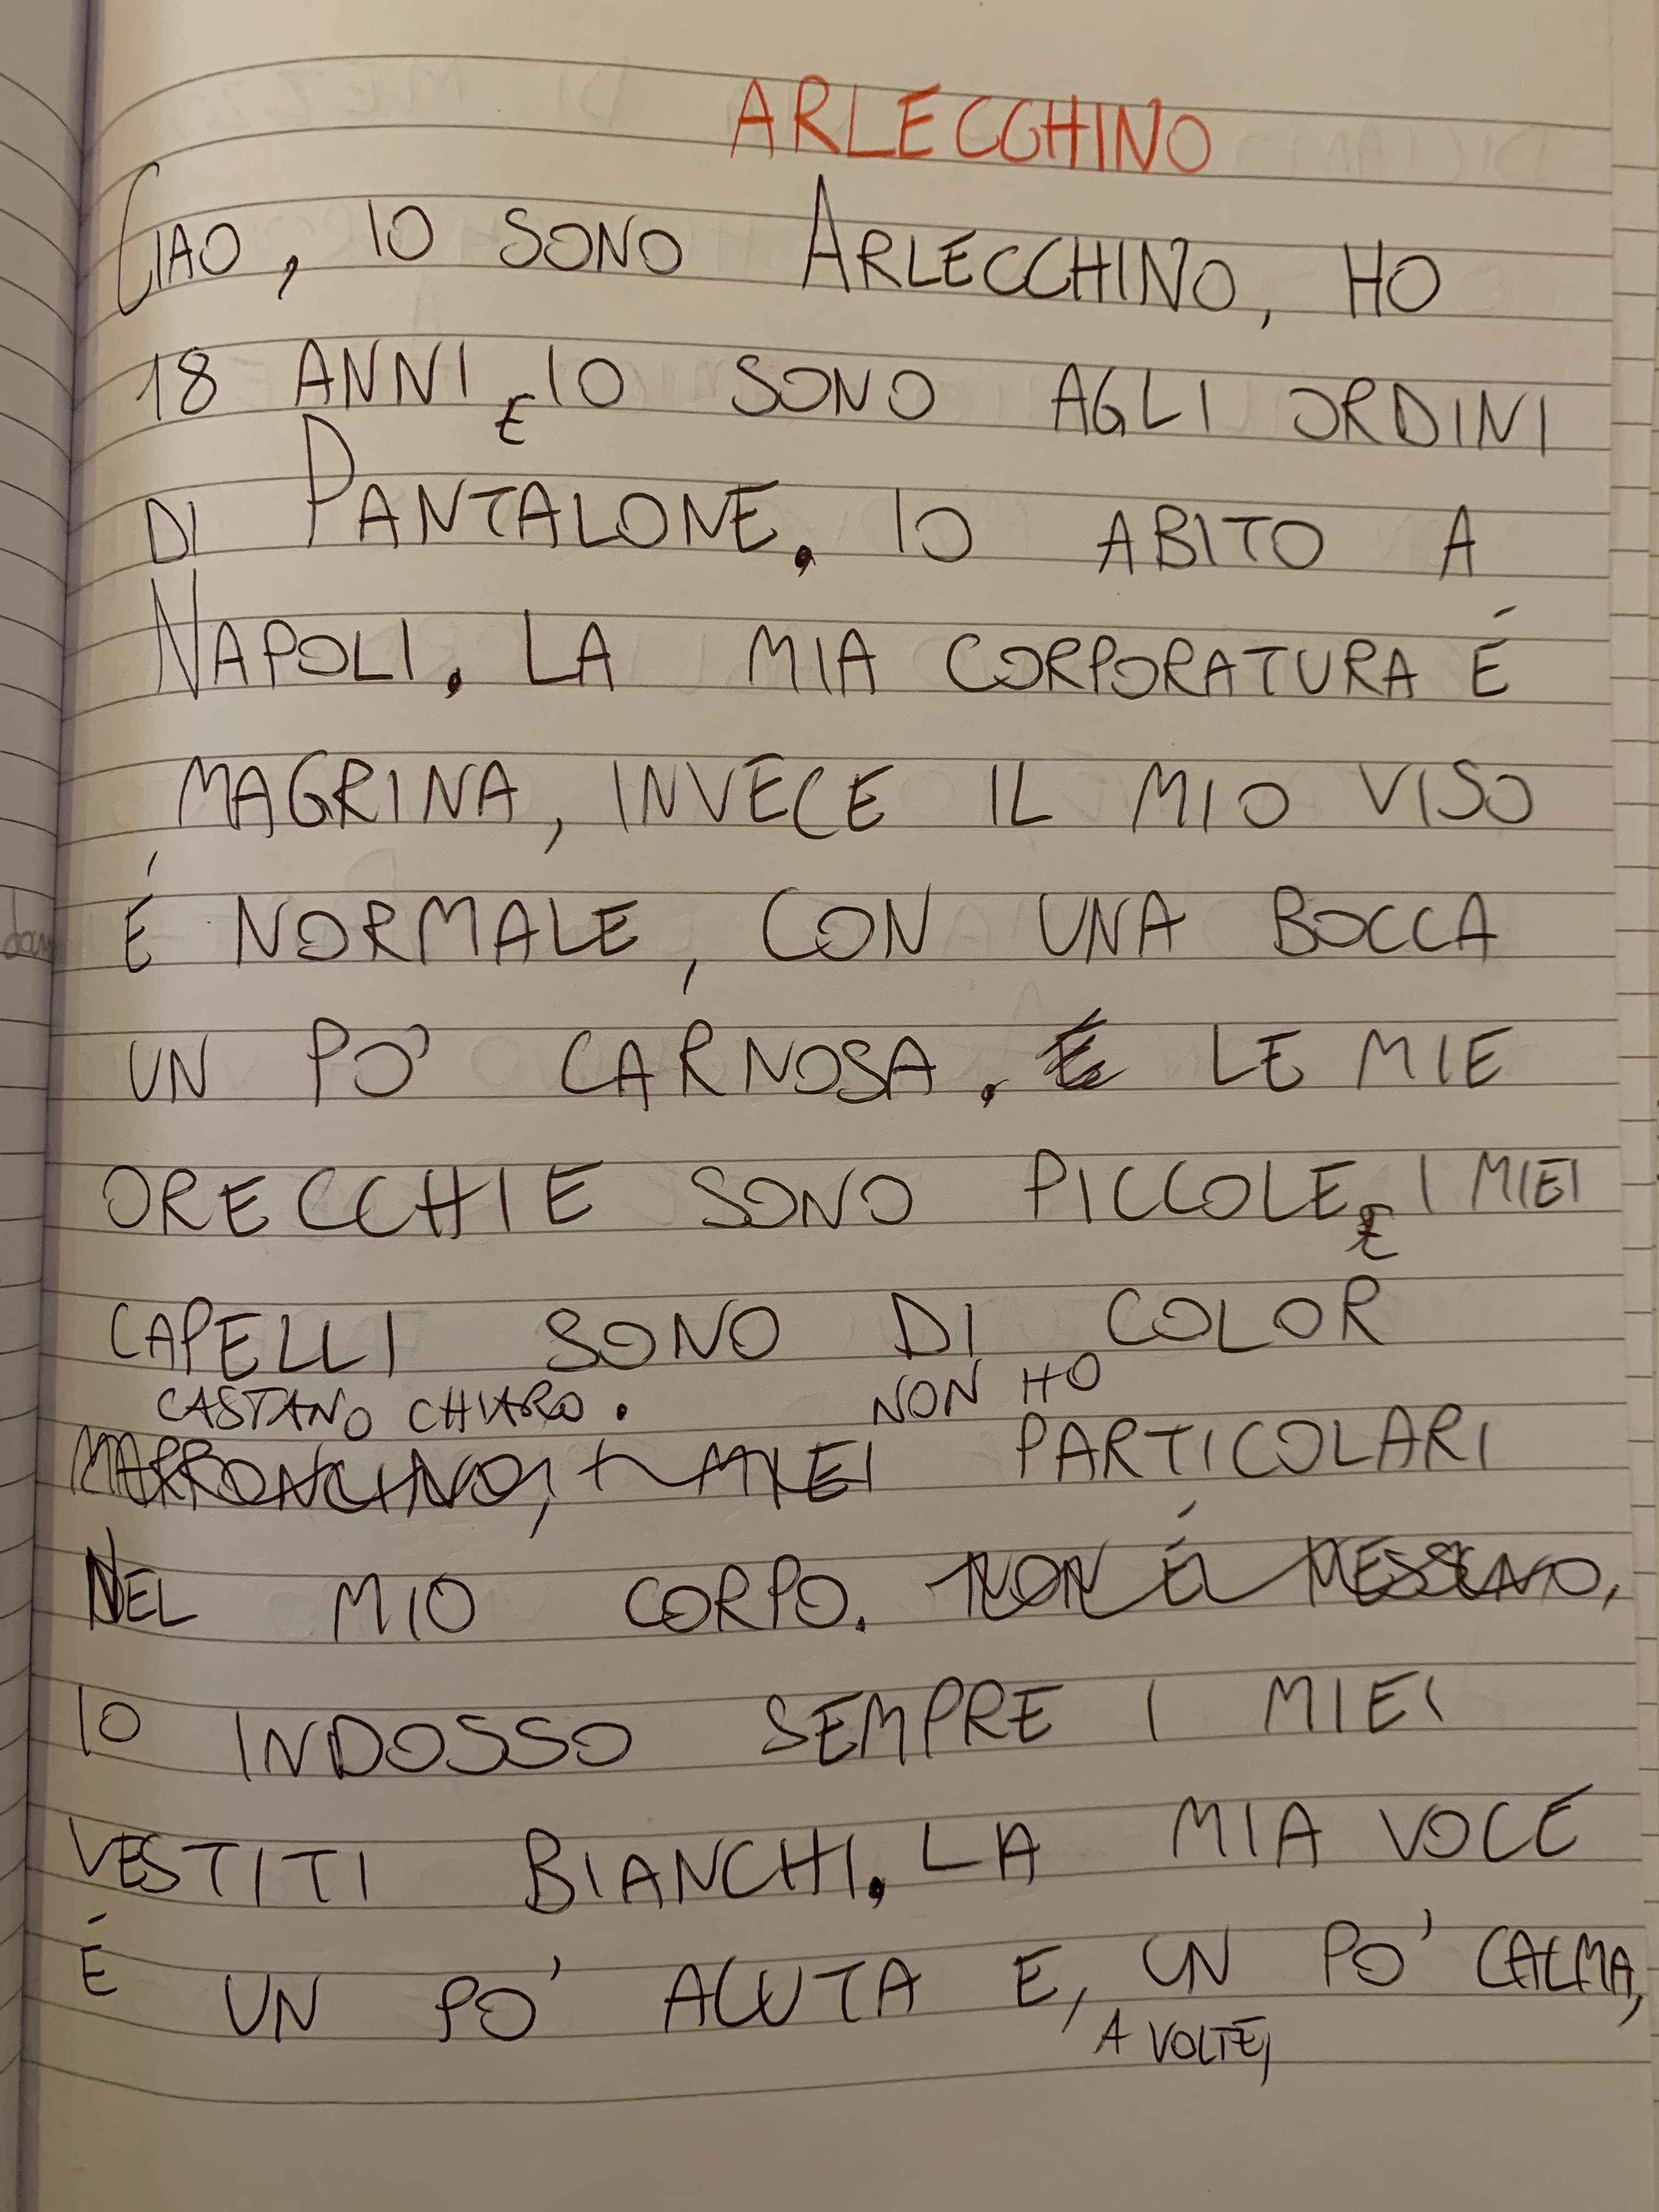 ARLECCHINO
CIAO, IO SONO ARLECCHINO, HO
18 ANNI E IO SONO AGLI ORDINI
DI PANTALONE. IO ABITO A
NAPOLI. LA MIA CORPORATURA É
MAGRINA, INVECE IL MIO VISO
É NORMALE, CON UNA BOCCA
UN PO' CARNOSA. LE MIE
ORECCHIE SONO PICCOLE E I MIEI
CAPELLI SONO DI COLOR
CASTANO CHIARO. NON HO
MARRONCINO, I MIEI PARTICOLARI
NEL MIO CORPO. NON É NESSUNO,
IO INDOSSO SEMPRE I MIEI
VESTITI BIANCHI. LA MIA VOCE
É UN PO' ACUTA E, UN PO' CALMA,
A VOLTE,